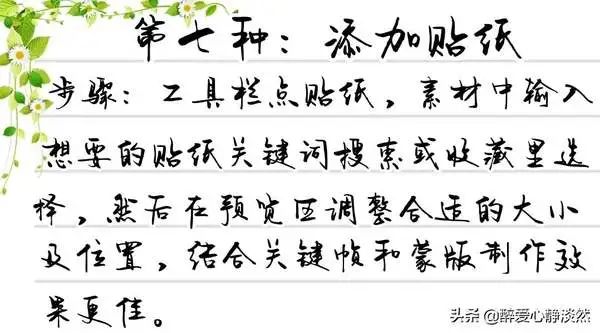 第七种：添加贴纸
步骤：工具栏点贴纸，素材中输入
想要的贴纸关键词搜索或收藏里选
择，然后在预览区调整合适的大小
及位置，结合关键帧和蒙版制作效
果更佳。
头条 @醉爱心静淡然